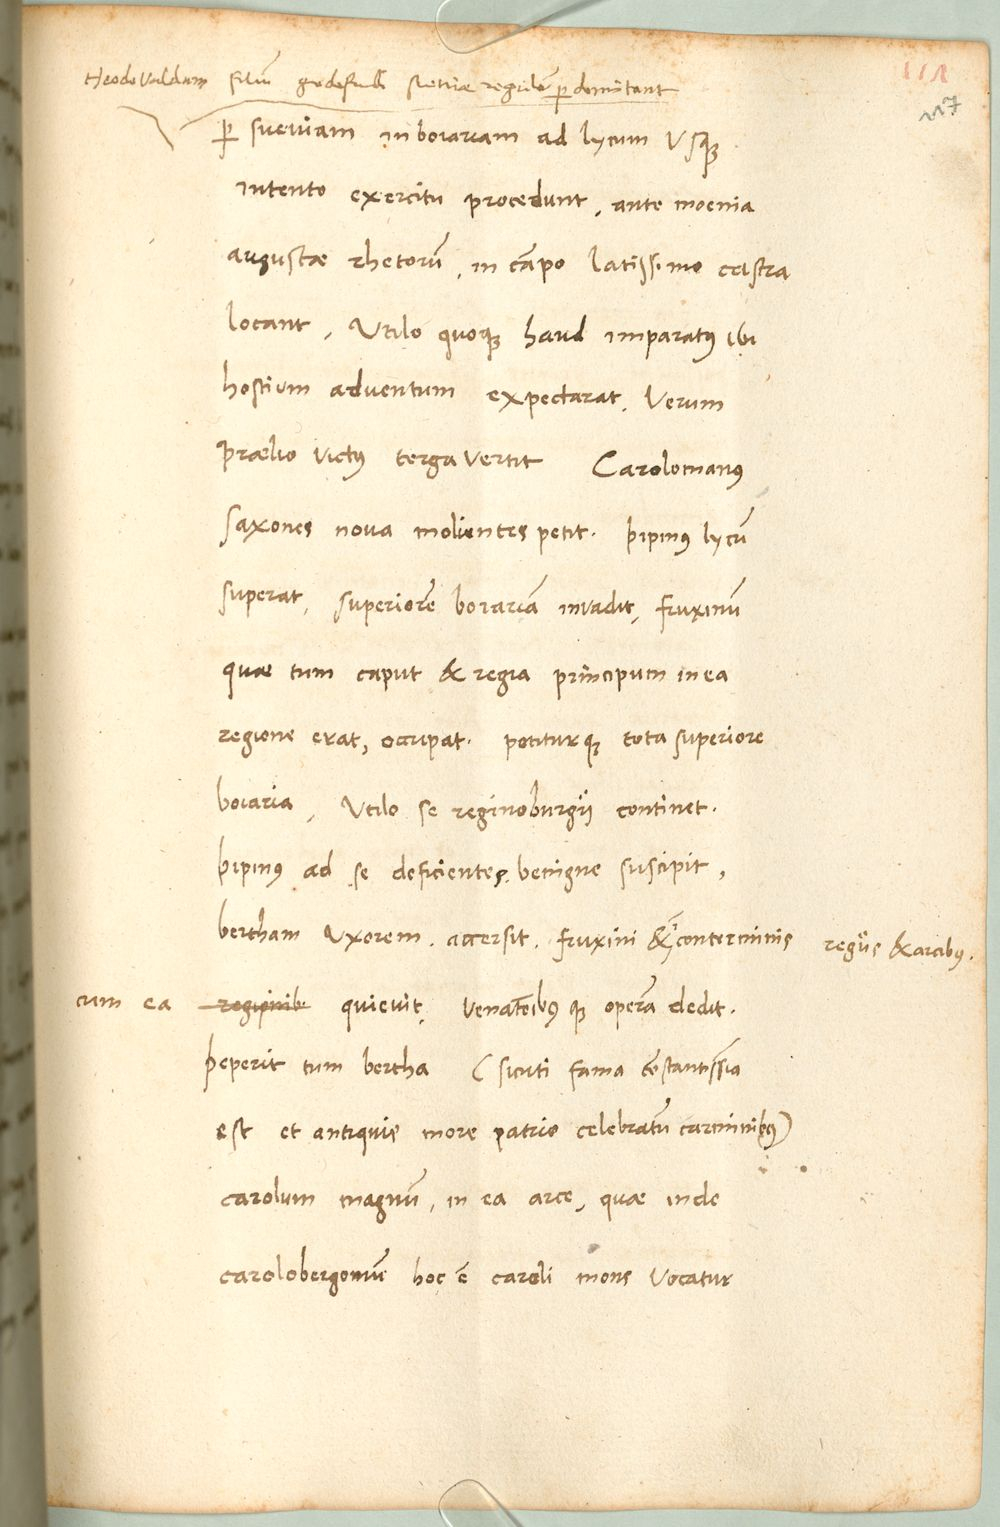 111
117
theodovaldum filiũ godefridi sueviae regulũ p̱domitant
p̱ sueuiam in boiariam ad lycum Vsqꝫ
intento exercitu procedunt, ante moenia
augustae rhetorũ, in cãpo latissimo castra
locant, Vtilo quoqꝫ haud imparatꝰ ibi
hostium aduentum expectarat, Verum
praelio victꝰ terga vertit Carolomanꝰ
saxones noua molientes petit. pipinꝰ lycũ
superat, superiorẽ boiariã inuadit, fruxinũ
quae tum caput & regia principum in ea
regione erat, occupat. potiturqꝫ tota superiore
boiaria, Vtilo se reginoburgii continet.
pipinꝰ ad se deficientes benigne suscipit,
bertham Vxorem accersit. fruxini & conterminis regiis & arcibꝰ.
cum ea regionibꝰ quieuit, Venatõibꝰqꝫ operã dedit.
peperit tum bertha (sicuti fama cõstantissĩa
est et antiquis more patrio celebratũ carminibꝰ)
carolum magnũ, in ea arce, quae inde
carolobergomũ hoc ẽ caroli mons Vocatur